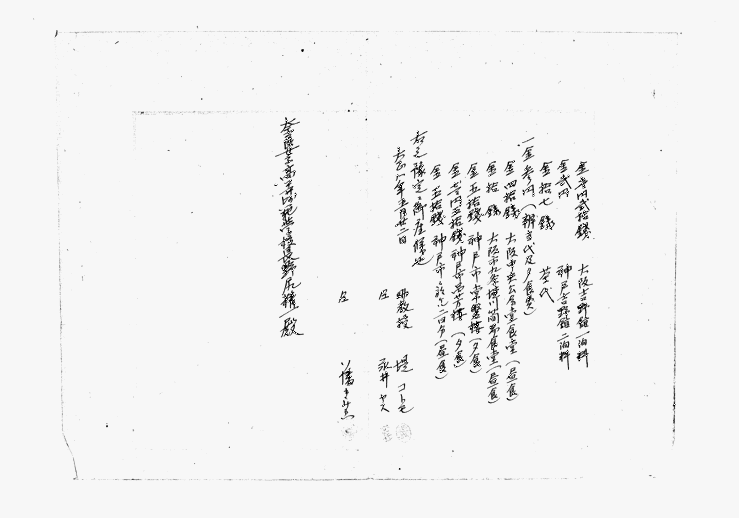 金壱円弐拾銭 大阪吉野館一泊料
金弐円 神戸吉野館二泊料
金拾七銭 茶代
一金参円(辨当代及夕食費)
金四拾銭 大阪中央公会堂食堂(昼食)
金拾銭 大阪市九条 食堂(昼食)
金五拾銭 神戸市常盤楼(夕食)
金壱円五拾銭 神戸市 楼(夕食)
金五拾銭 神戸市 二日分(昼食)
右之豫定ニ御座候也
年五月廿二日
助教授 堤 コトモ
仝 永井 ヤス
仝
奈良女子高等師範学校長野尻精一殿